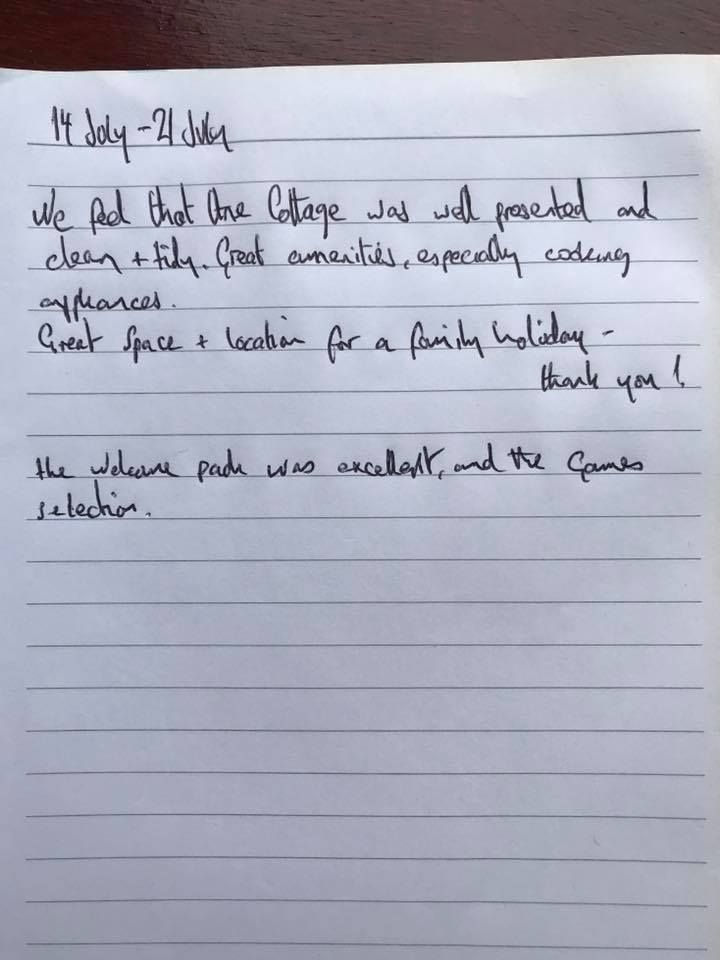 14 July - 21 July
We feel that the Cottage was well presented and
clean + tidy. Great amenities, especially cooking
appliances.
Great Space + location for a family holiday -
thank you!
the welcome pack was excellent, and the Games
selection.